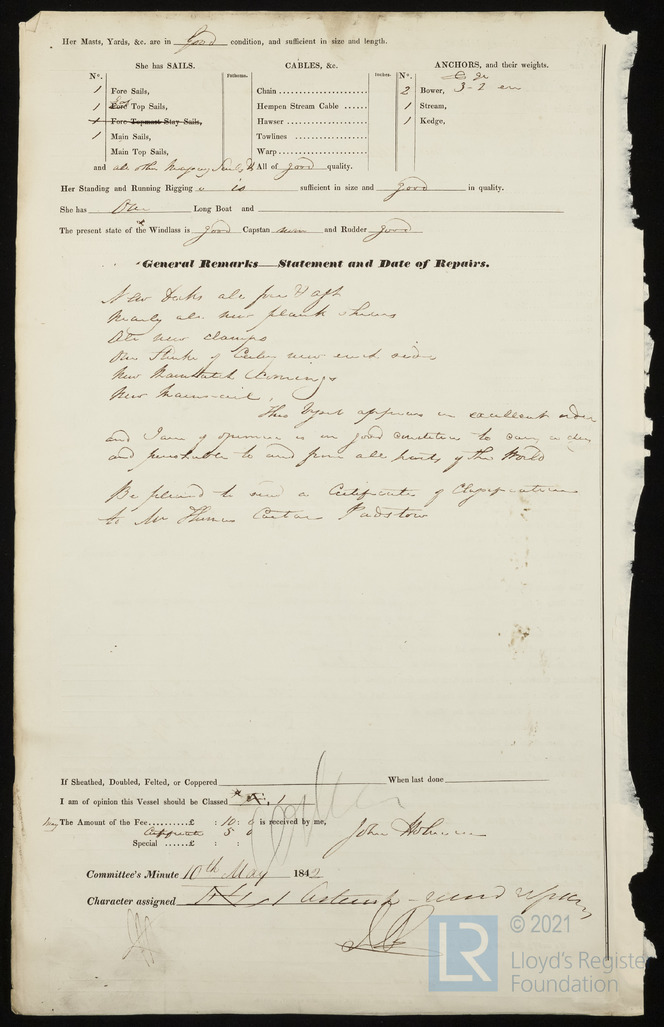 Her Masts, Yards, &c. are in Good condition, and sufficient in size and length.
She has SAILS.
CABLES, &c.
ANCHORS, and their weights.
N°.
Fathoms.
Inches.
N°.
1 Fore Sails,
Chain
2 Bower,
1 Fore Top Sails,
Hempen Stream Cable
1 Stream,
1 Fore Topmast Stay Sails,
Hawser
1 Kedge,
1 Main Sails,
Towlines
Main Top Sails,
Warp
and all other All of good quality.
Her Standing and Running Rigging is sufficient in size and good in quality.
She has One Long Boat and
The present state of the Windlass is good Capstan none and Rudder good
General Remarks—Statement and Date of Repairs.
New Decks all fore & aft
Nearly all new plank sheers
new clamps
One Strake of new each side
New Main Hatch Comings
New Mainsail.
This appears in excellent order
and I am of opinion is in good condition to carry a dry
and perishable to and from all parts of the World
Be pleased to send a Certificate of Classification
to Mr Thomas Padstow
If Sheathed, Doubled, Felted, or Coppered When last done
I am of opinion this Vessel should be Classed
The Amount of the Fee £ : 10 : 0 is received by me,
Certificate 5 0
John
Special £ : :
Committee's Minute 10th May 1842
Character assigned
LR
© 2021
Lloyd's Register
Foundation